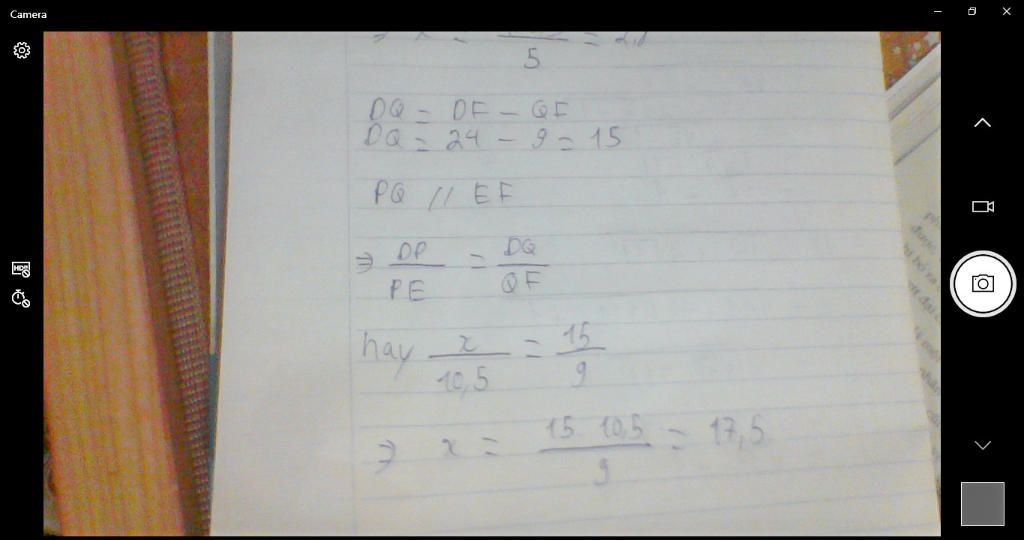 Camera
5
DQ = DF - QF
DQ = 24 - 9 = 15
PQ // EF
⇒ DP/PE = DQ/QF
hay x/10,5 = 15/9
⇒ x = 15 . 10,5/9 = 17,5